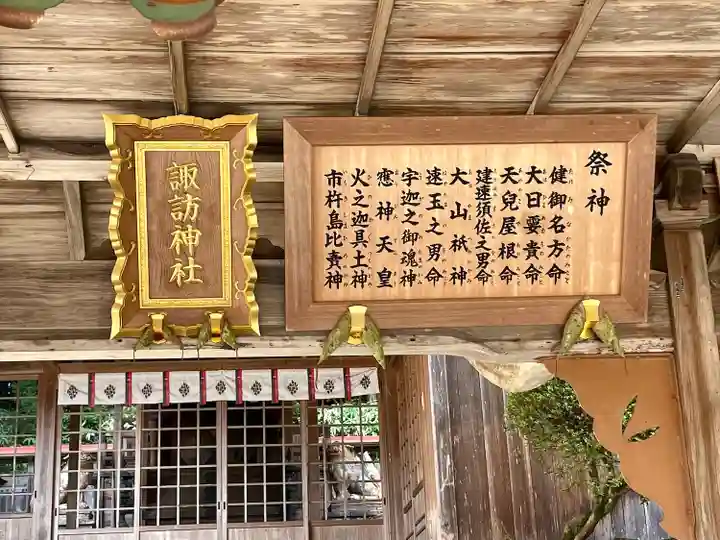 祭神
健御名方命
大日孁貴命
天兒屋根命
建速須佐之男命
大山祇神
速玉之男命
宇迦之御魂神
應神天皇
火之迦具土神
市杵島比賣神
諏訪神社